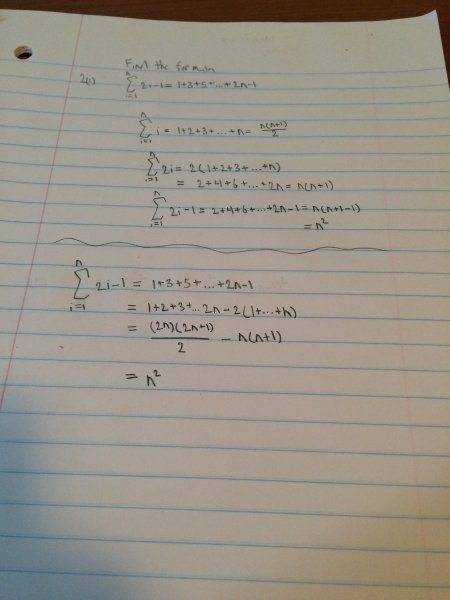 Find the formula
2(i) \sum_{i=1}^{n} 2i-1 = 1+3+5+...+2n-1
\sum_{i=1}^{n} i = 1+2+3+...+n = \frac{n(n+1)}{2}
\sum_{i=1}^{n} 2i = 2(1+2+3+...+n)
= 2+4+6+...+2n = n(n+1)
\sum_{i=1}^{n} 2i-1 = 2+4+6+...+2n-1 = n(n+1-1)
= n^2
\sum_{i=1}^{n} 2i-1 = 1+3+5+...+2n-1
= 1+2+3+...2n-2(1+...+n)
= \frac{(2n)(2n+1)}{2} - n(n+1)
= n^2